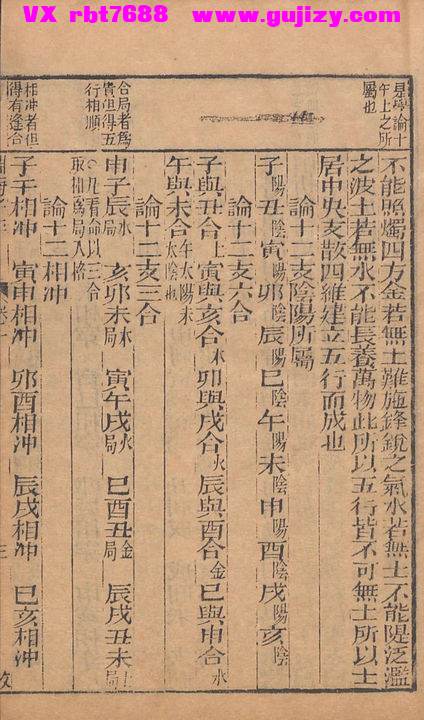 VX rbt7688 www.gujizy.com
是專論十
午土之所
屬也
合局者為
貴但得五
行相順
相冲者但
得有逢合
不能照燭四方金若無土難施鋒銳之氣水若無土不能隄泛濫
之波土若無水不能長養萬物此所以五行皆不可無土所以土
居中央支散四維建立五行而成也
論十二支陰陽所屬
子陽丑陰寅陽卯陰辰陽巳陰午陽未陰申陽酉陰戌陽亥陰
論十二支六合
子與丑合土寅與亥合木卯與戌合火辰與酉合金巳與申合水
午與未合午太陽未太陰也
論十二支三合
申子辰水局 亥卯未木局 寅午戌火局 巳酉丑金局 辰戌丑未土局
○凡看命以三合取相為局入格
論十二相冲
子午相冲 寅申相冲 卯酉相冲 辰戌相冲 巳亥相冲
淵海子平 卷一 三